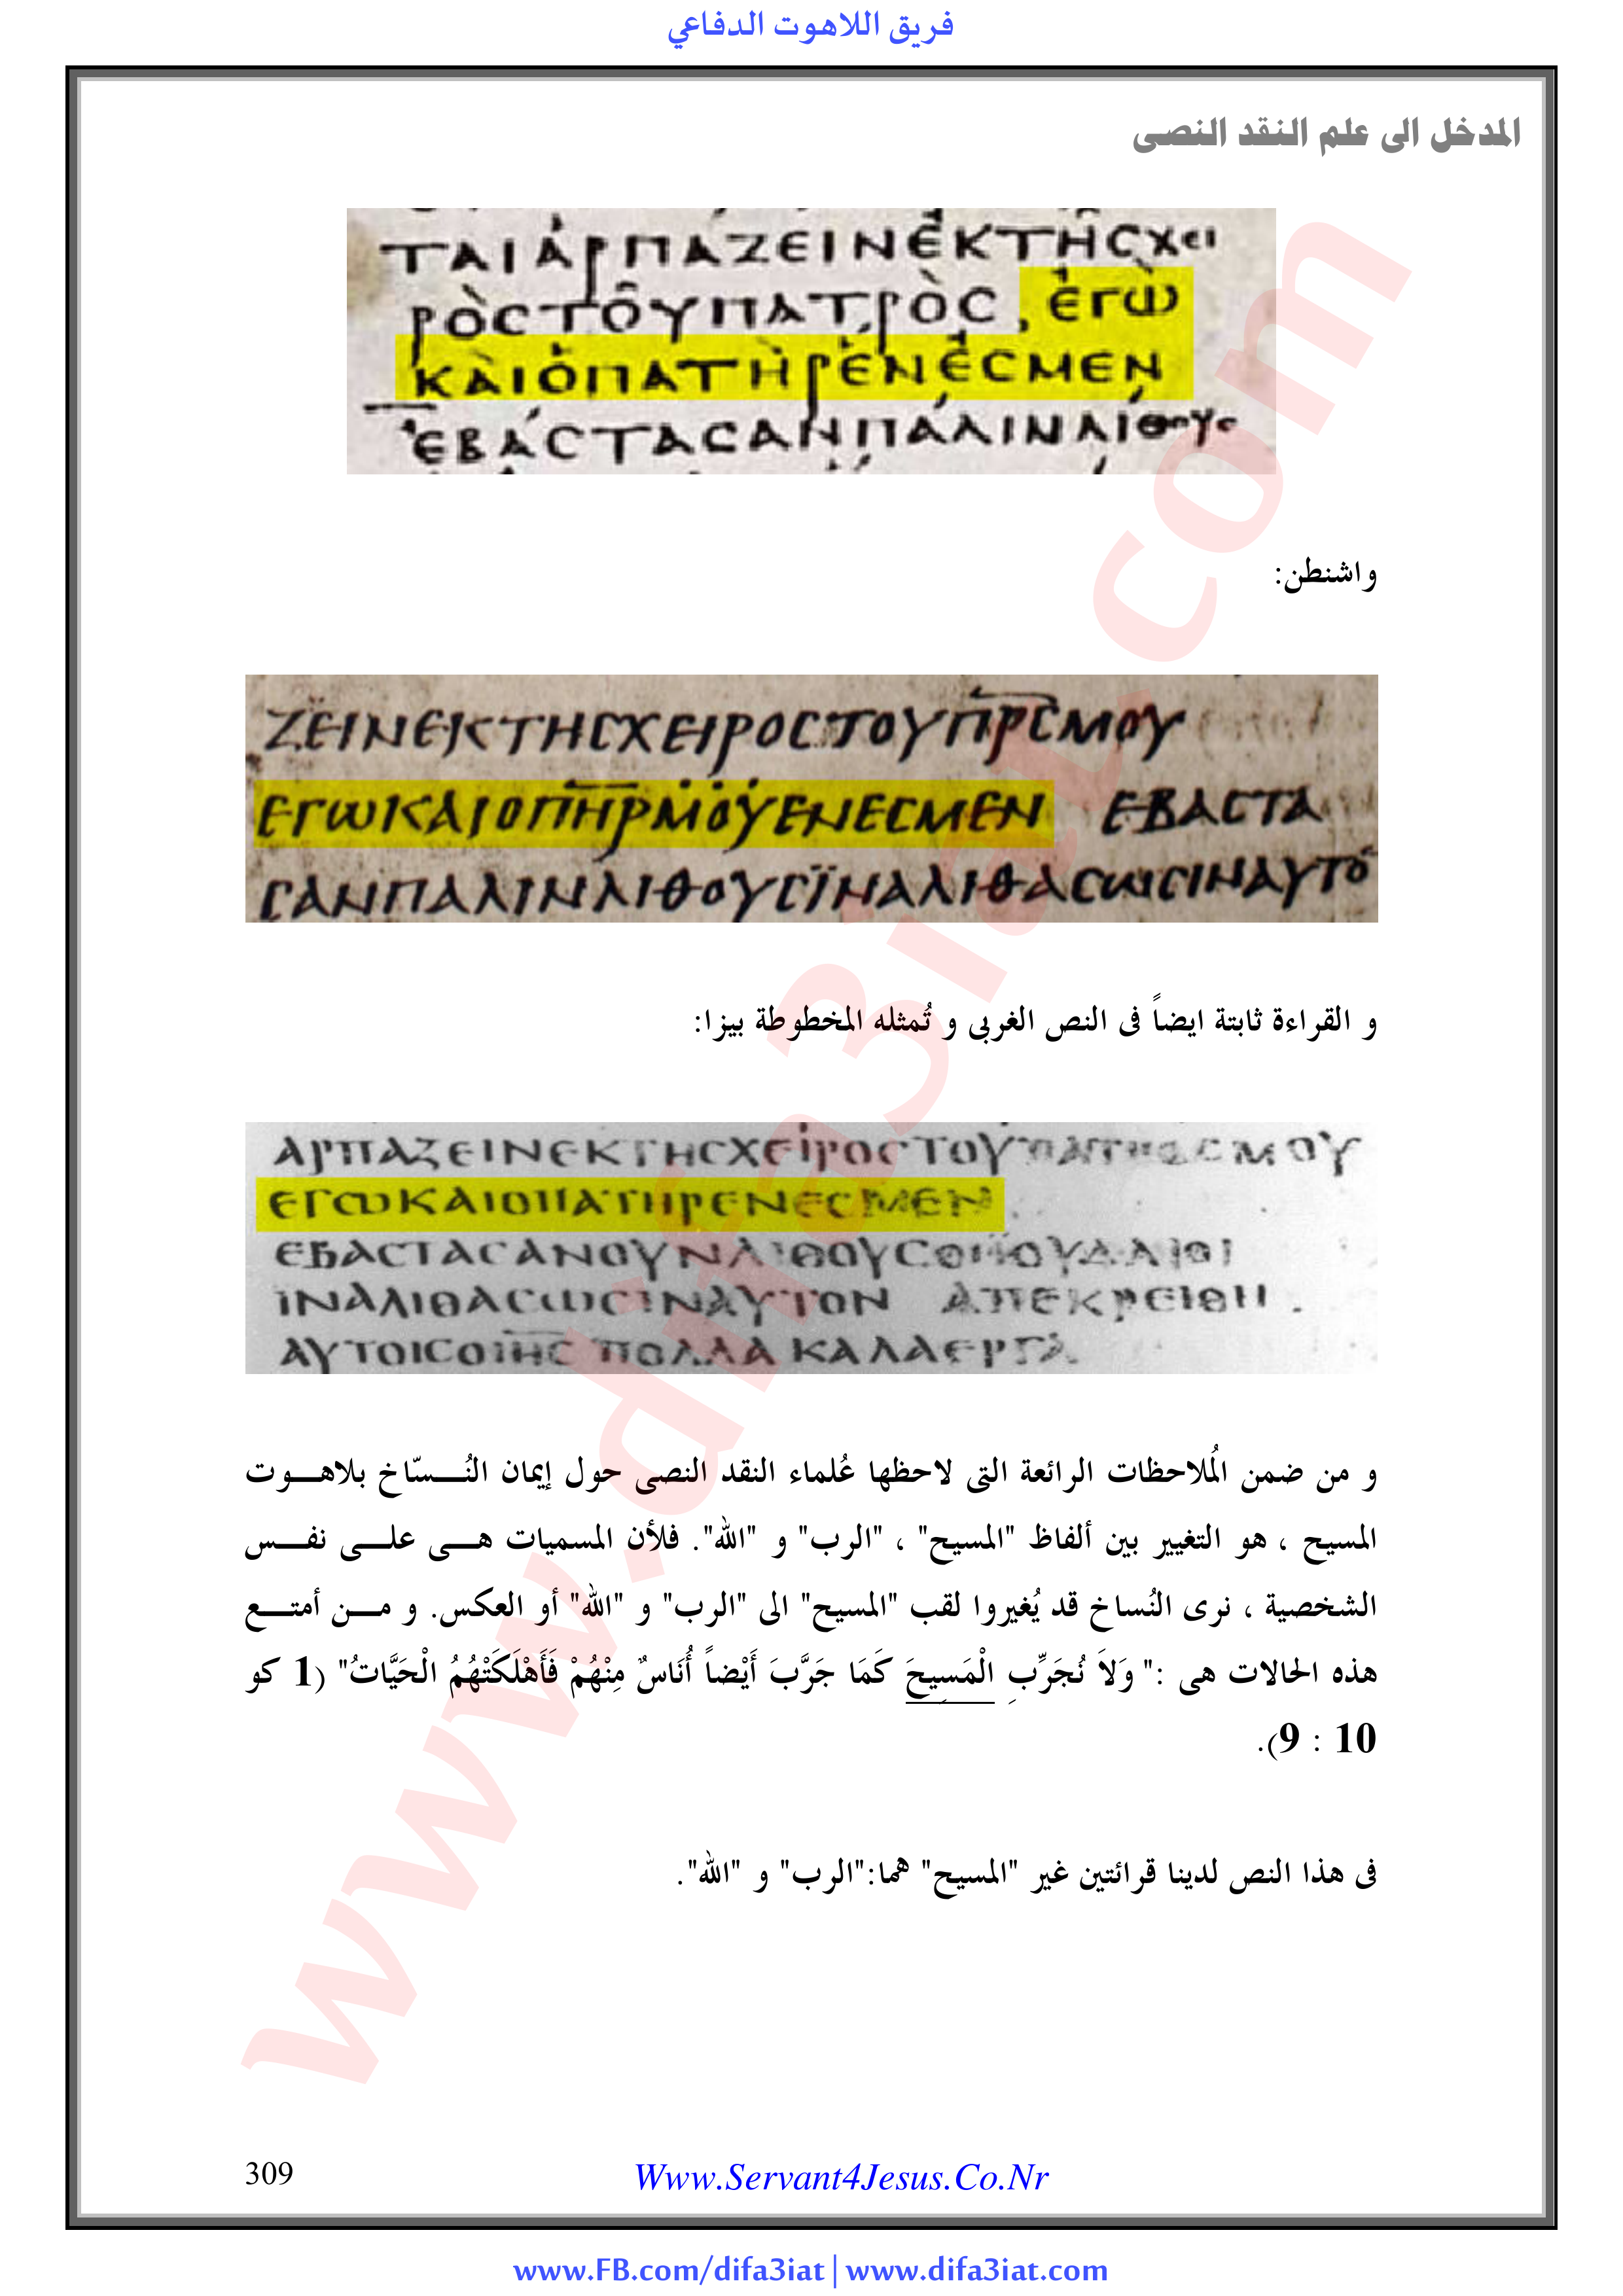 فريق اللاهوت الدفاعي
المدخل الى علم النقد النصى
ΤΑΙἉΡΠΆΖΕΙΝἘΚΤΗ͂ϹΧΕΙ
ΡῸϹΤΟΥ͂ΠΑΤΡῸϹ, ἐΓῺ
ΚΑῚὉΠΑΤῊΡἕΝἐϹΜΕΝ
ἐΒΆϹΤΑϹΑΝΠΆΛΙΝΛΊΘΟΥϹ
واشنطن:
ΖΕΙΝΕΚΤΗϹΧΕΙΡΟϹΤΟΥΠΡ̅Ϲ̅ΜΟΥ
ΕΓωΚΑΙΟΠ̅Η̅Ρ̅Μ̇Ο̇Υ̇ΕΝΕϹΜΕΝ ΕΒΑϹΤΑ
ϹΑΝΠΑΛΙΝΛΙΘΟΥϹΪΝΑΛΙΘΑϹωϹΙΝΑΥΤΟ
و القراءة ثابتة ايضاً فى النص الغربى و تُمثله المخطوطة بيزا:
ΑΡΠΑΖΕΙΝΕΚΤΗϹΧΕΙΡΟϹΤΟΥΠΑΤΡΟϹΜΟΥ
ΕΓωΚΑΙΟΠΑΤΗΡΕΝΕϹΜΕΝ
ΕΒΑϹΤΑϹΑΝΟΥΝΛΙΘΟΥϹΟΙΙΟΥΔΑΙΟΙ
ΪΝΑΛΙΘΑϹωϹΙΝΑΥΤΟΝ ΑΠΕΚΡΕΙΘΗ
ΑΥΤΟΙϹΟΙ̅Η̅Ϲ̅ ΠΟΛΛΑ ΚΑΛΑΕΡΓΑ
و من ضمن المُلاحظات الرائعة التى لاحظها عُلماء النقد النصى حول إيمان النُـــسّاخ بلاهـــوت
المسيح ، هو التغيير بين ألفاظ "المسيح" ، "الرب" و "الله". فلأن المسميات هـــى علـــى نفـــس
الشخصية ، نرى النُساخ قد يُغيروا لقب "المسيح" الى "الرب" و "الله" أو العكس. و مـــن أمتـــع
هذه الحالات هى :" وَلاَ نُجَرِّبِ الْمَسِيحَ كَمَا جَرَّبَ أَيْضاً أُنَاسٌ مِنْهُمْ فَأَهْلَكَتْهُمُ الْحَيَّاتُ" (1 كو
10 : 9).
فى هذا النص لدينا قرائتين غير "المسيح" هما:"الرب" و "الله".
309
Www.Servant4Jesus.Co.Nr
www.FB.com/difa3iat | www.difa3iat.com
www.difa3iat.com